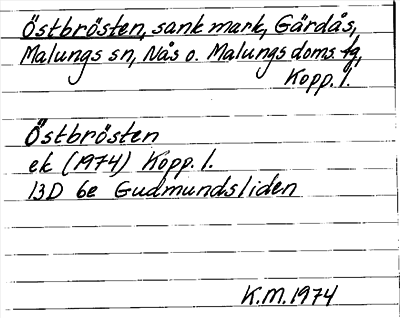 Östbrösten, sank mark, Gärdås,
Malungs sn, Nås o. Malungs doms. fg,
Kopp. l.
Östbrösten
ek (1974) Kopp. l.
13D 6e Gudmundsliden
K.M. 1974